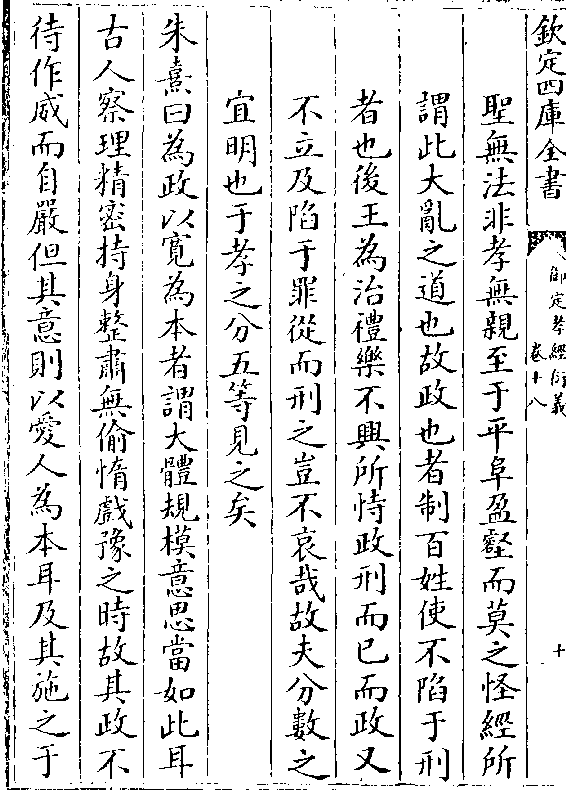 欽定四庫全書
御定孝經衍義
卷十八
十
聖無法非孝無親至于平阜盈壑而莫之怪經所
謂此大亂之道也故政也者制百姓使不陷于刑
者也後王為治禮樂不興所恃政刑而已而政又
不立及陷于罪從而刑之豈不哀哉故夫分數之
宜明也于孝之分五等見之矣
朱熹曰為政以寬為本者謂大體規模意思當如此耳
古人察理精密持身整肅無偷惰戲豫之時故其政不
待作威而自嚴但其意則以愛人為本耳及其施之于